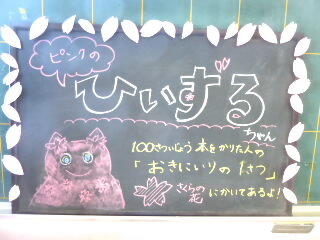 ピンクの
ひいずる
ちゃん
100さついじょう 本をかりた人の
「おきにいりの1さつ」
さくらの花 にかいてあるよ!